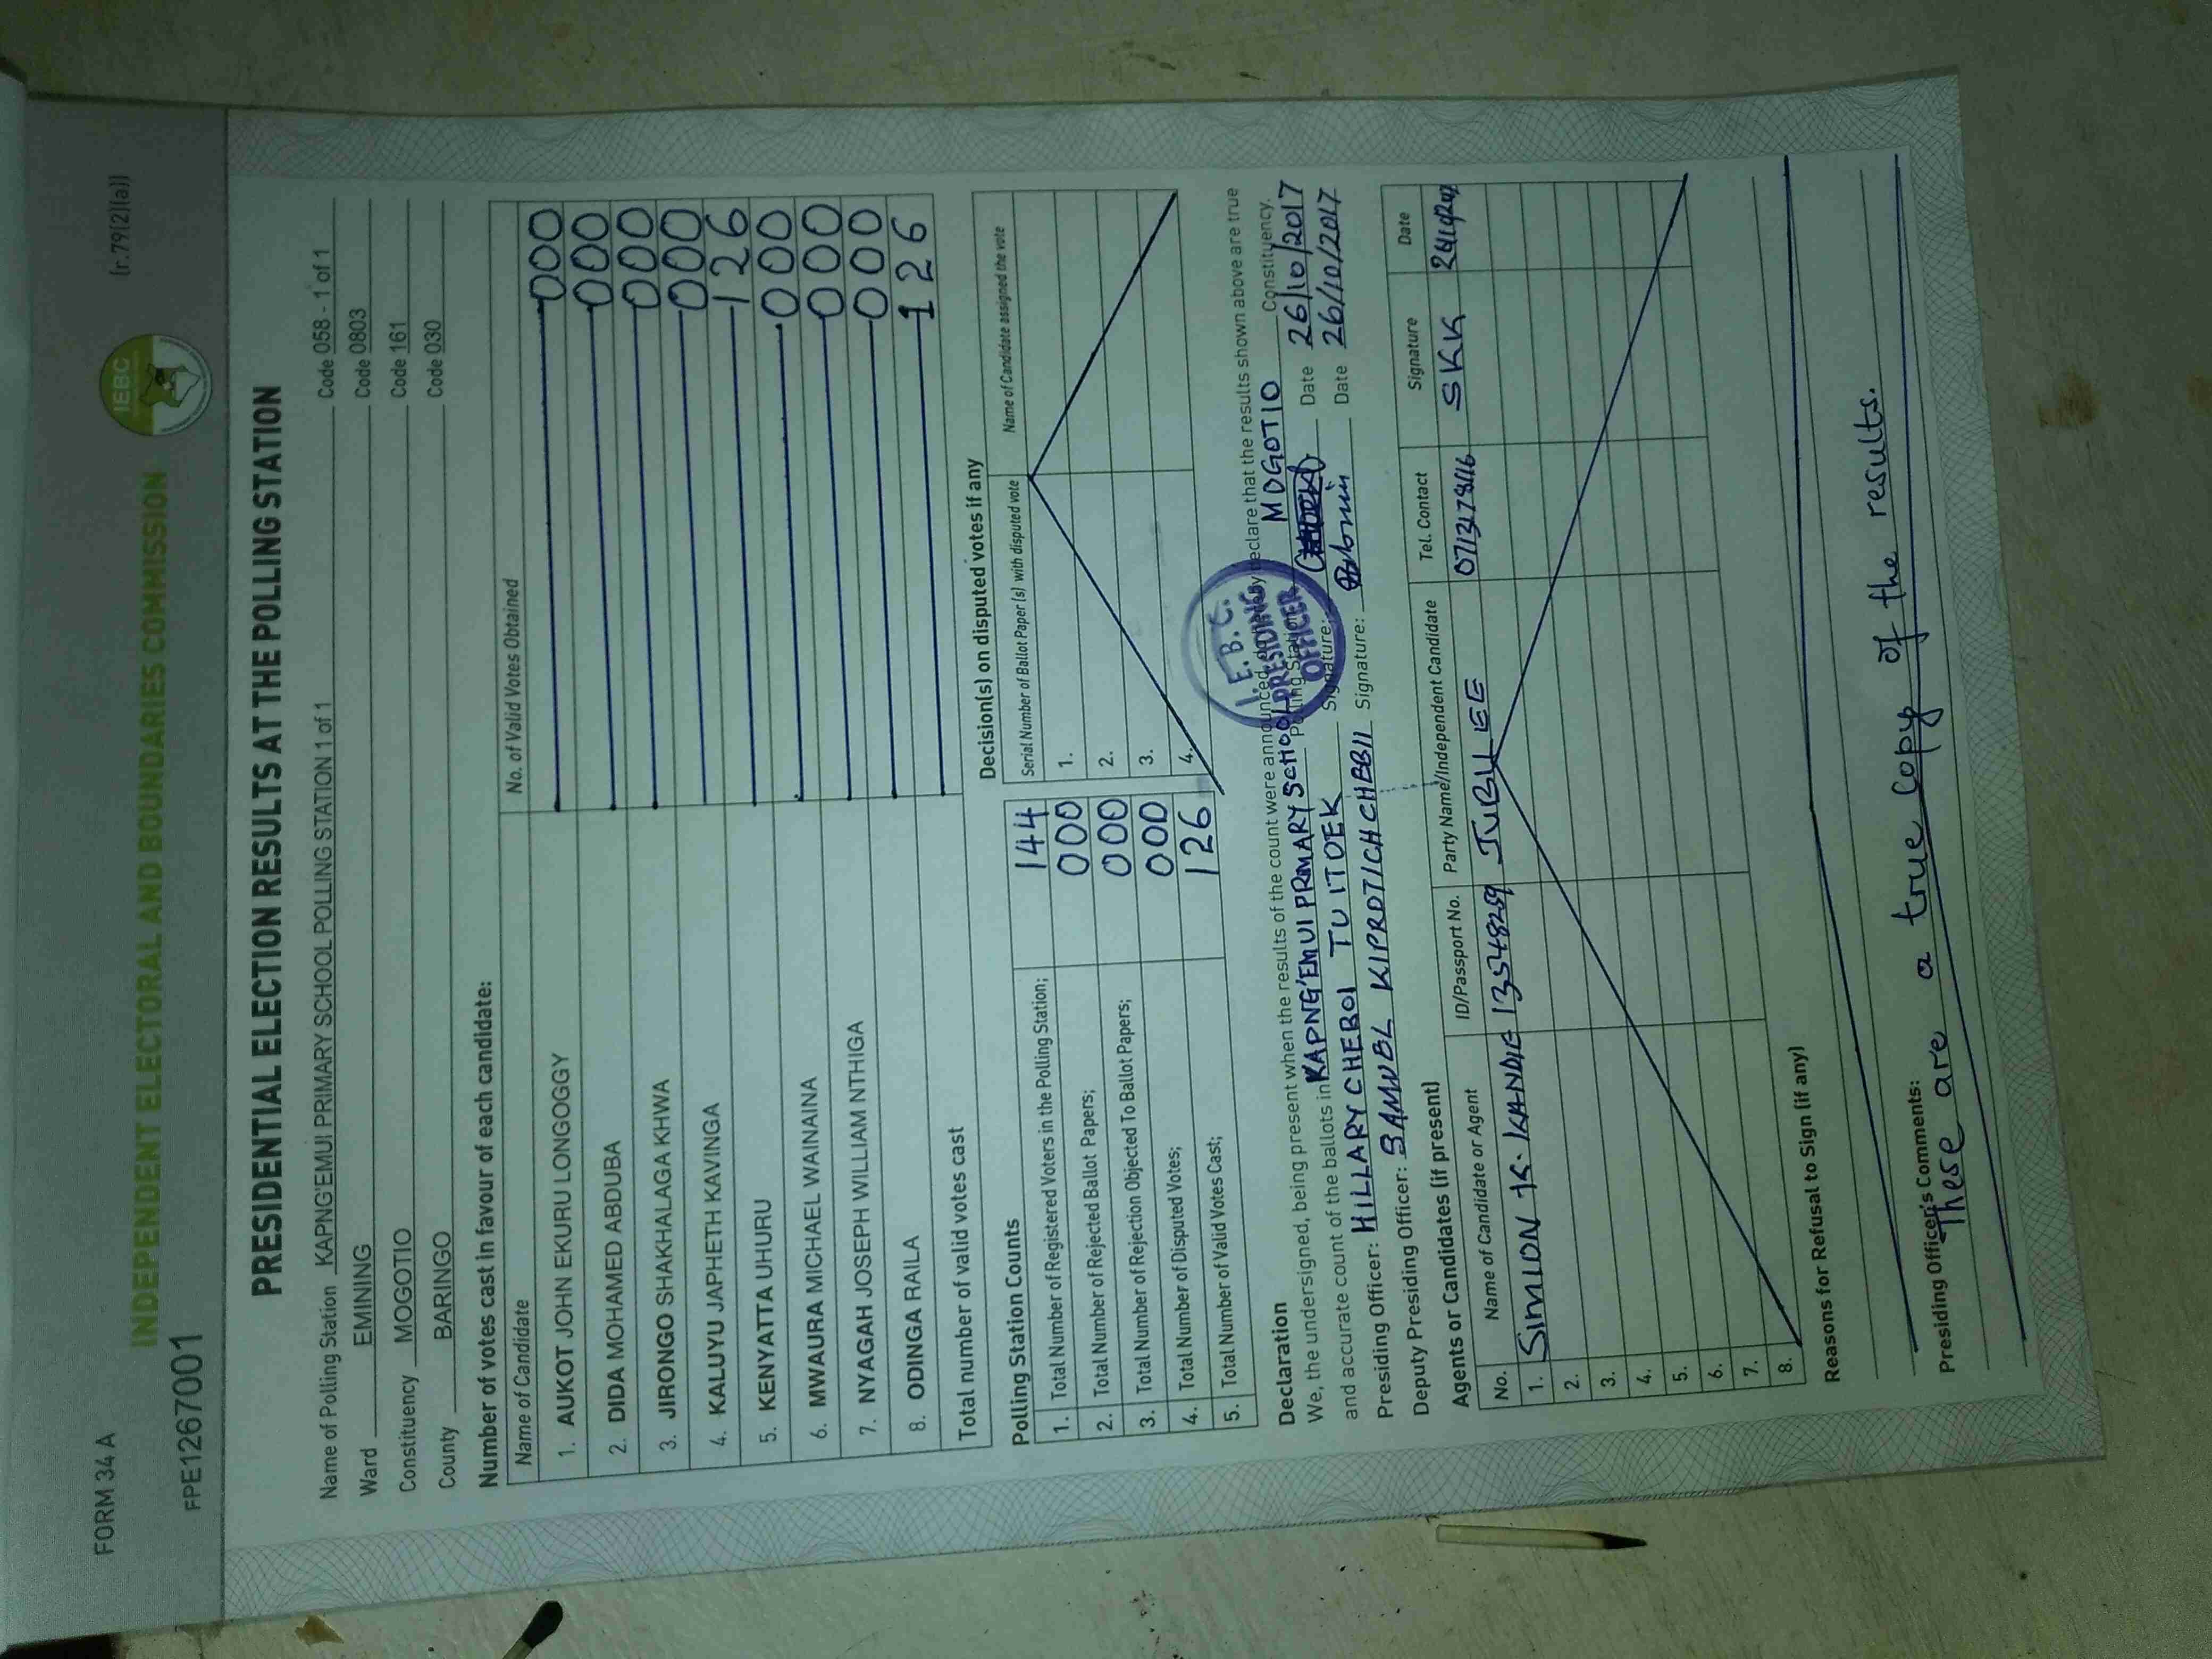 FORM 34 A
(r.79(2)(a))
INDEPENDENT ELECTORAL AND BOUNDARIES COMMISSION
IEBC
FPE1267001
PRESIDENTIAL ELECTION RESULTS AT THE POLLING STATION
Name of Polling Station KAPNG'EMUI PRIMARY SCHOOL POLLING STATION 1 of 1 Code 058 - 1 of 1
Ward EMINING Code 0803
Constituency MOGOTIO Code 161
County BARINGO Code 030
Number of votes cast in favour of each candidate:
Name of Candidate No. of Valid Votes Obtained
1. AUKOT JOHN EKURU LONGOGGY 000
2. DIDA MOHAMED ABDUBA 000
3. JIRONGO SHAKHALAGA KHWA 000
4. KALUYU JAPHETH KAVINGA 000
5. KENYATTA UHURU 126
6. MWAURA MICHAEL WAINAINA 000
7. NYAGAH JOSEPH WILLIAM NTHIGA 000
8. ODINGA RAILA 000
Total number of valid votes cast 126
Polling Station Counts
1. Total Number of Registered Voters in the Polling Station; 144
2. Total Number of Rejected Ballot Papers; 000
3. Total Number of Rejection Objected To Ballot Papers; 000
4. Total Number of Disputed Votes; 000
5. Total Number of Valid Votes Cast; 126
Decision(s) on disputed votes if any
Serial Number of Ballot Paper (s) with disputed vote Name of Candidate assigned the vote
1.
2.
3.
4.
Declaration
We, the undersigned, being present when the results of the count were announced, do hereby declare that the results shown above are true
and accurate count of the ballots in KAPNG'EMUI PRIMARY SCHOOL Polling Station MOGOTIO Constituency.
Presiding Officer: HILLARY CHEBOI TUITOEK Signature: Date 26/10/2017
Deputy Presiding Officer: SAMUEL KIPROTICH CHEBII Signature: Date 26/10/2017
I.E.B.C.
PRESIDING
OFFICER
Agents or Candidates (if present)
No. Name of Candidate or Agent ID/Passport No. Party Name/Independent Candidate Tel. Contact Signature Date
1. SIMION K. KANDIE 13548259 JUBILEE SKK
2.
3.
4.
5.
6.
7.
8.
Reasons for Refusal to Sign (if any)
Presiding Officer's Comments:
These are a true copy of the results.